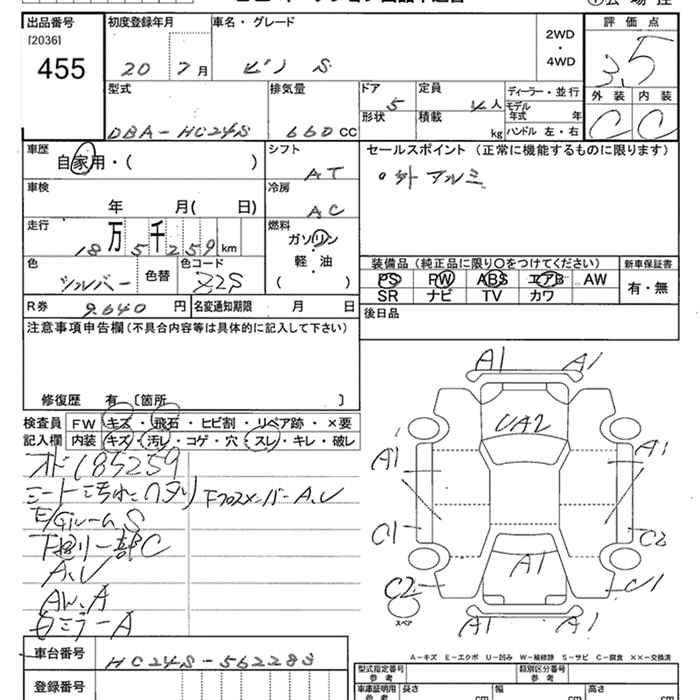 出品番号 初度登録年月 車名・グレード 評価点
[2036]
455
20 7 月 ピノ S
2WD
・
4WD
3.5
外装 内装
C C
型式 排気量 ドア 定員 ディーラー・並行
DBA-HC24S 660 CC 5 4 人
モデル年式 年
形状 積載 kg ハンドル 左・右
車歴 シフト セールスポイント (正常に機能するものに限ります)
自家用・( ) AT ・外 アルミ
車検 冷房
年 月( 日) AC
走行 燃料
18 万 5 千 2 5 9 km
ガソリン
軽・油
( )
色 色替 色コード
シルバー Z2S
装備品 (純正品に限り〇をつけてください) 新車保証書
PS PW ABS エアB AW
SR ナビ TV カワ
有・無
R券 9,640 円 名変通知期限 月 日
後日品
注意事項申告欄 (不具合内容等は具体的に記入して下さい)
修復歴 有 〔箇所 〕
検査員 FW キズ・飛石・ヒビ割・リペア跡・×要
記入欄 内装 キズ・汚れ・コゲ・穴・スレ・キレ・破レ
オド185259
シート汚れ ヘタリ
FクロスメンバーA,U
E/Gルーム S
下廻り一部C
A,U
AW,A
ミラーA
車台番号 HC24S-562283
登録番号
A1 A1
UA2
A1 A1
C1 C2
A1
C2 U1
スペア
A1 A1
A-キズ E-エクボ U-凹み W-補修跡 S-サビ C-腐食 ××-交換済
型式指定番号 参考 類別区分番号 参考
車庫証明用 参考 長さ cm 幅 cm 高さ cm